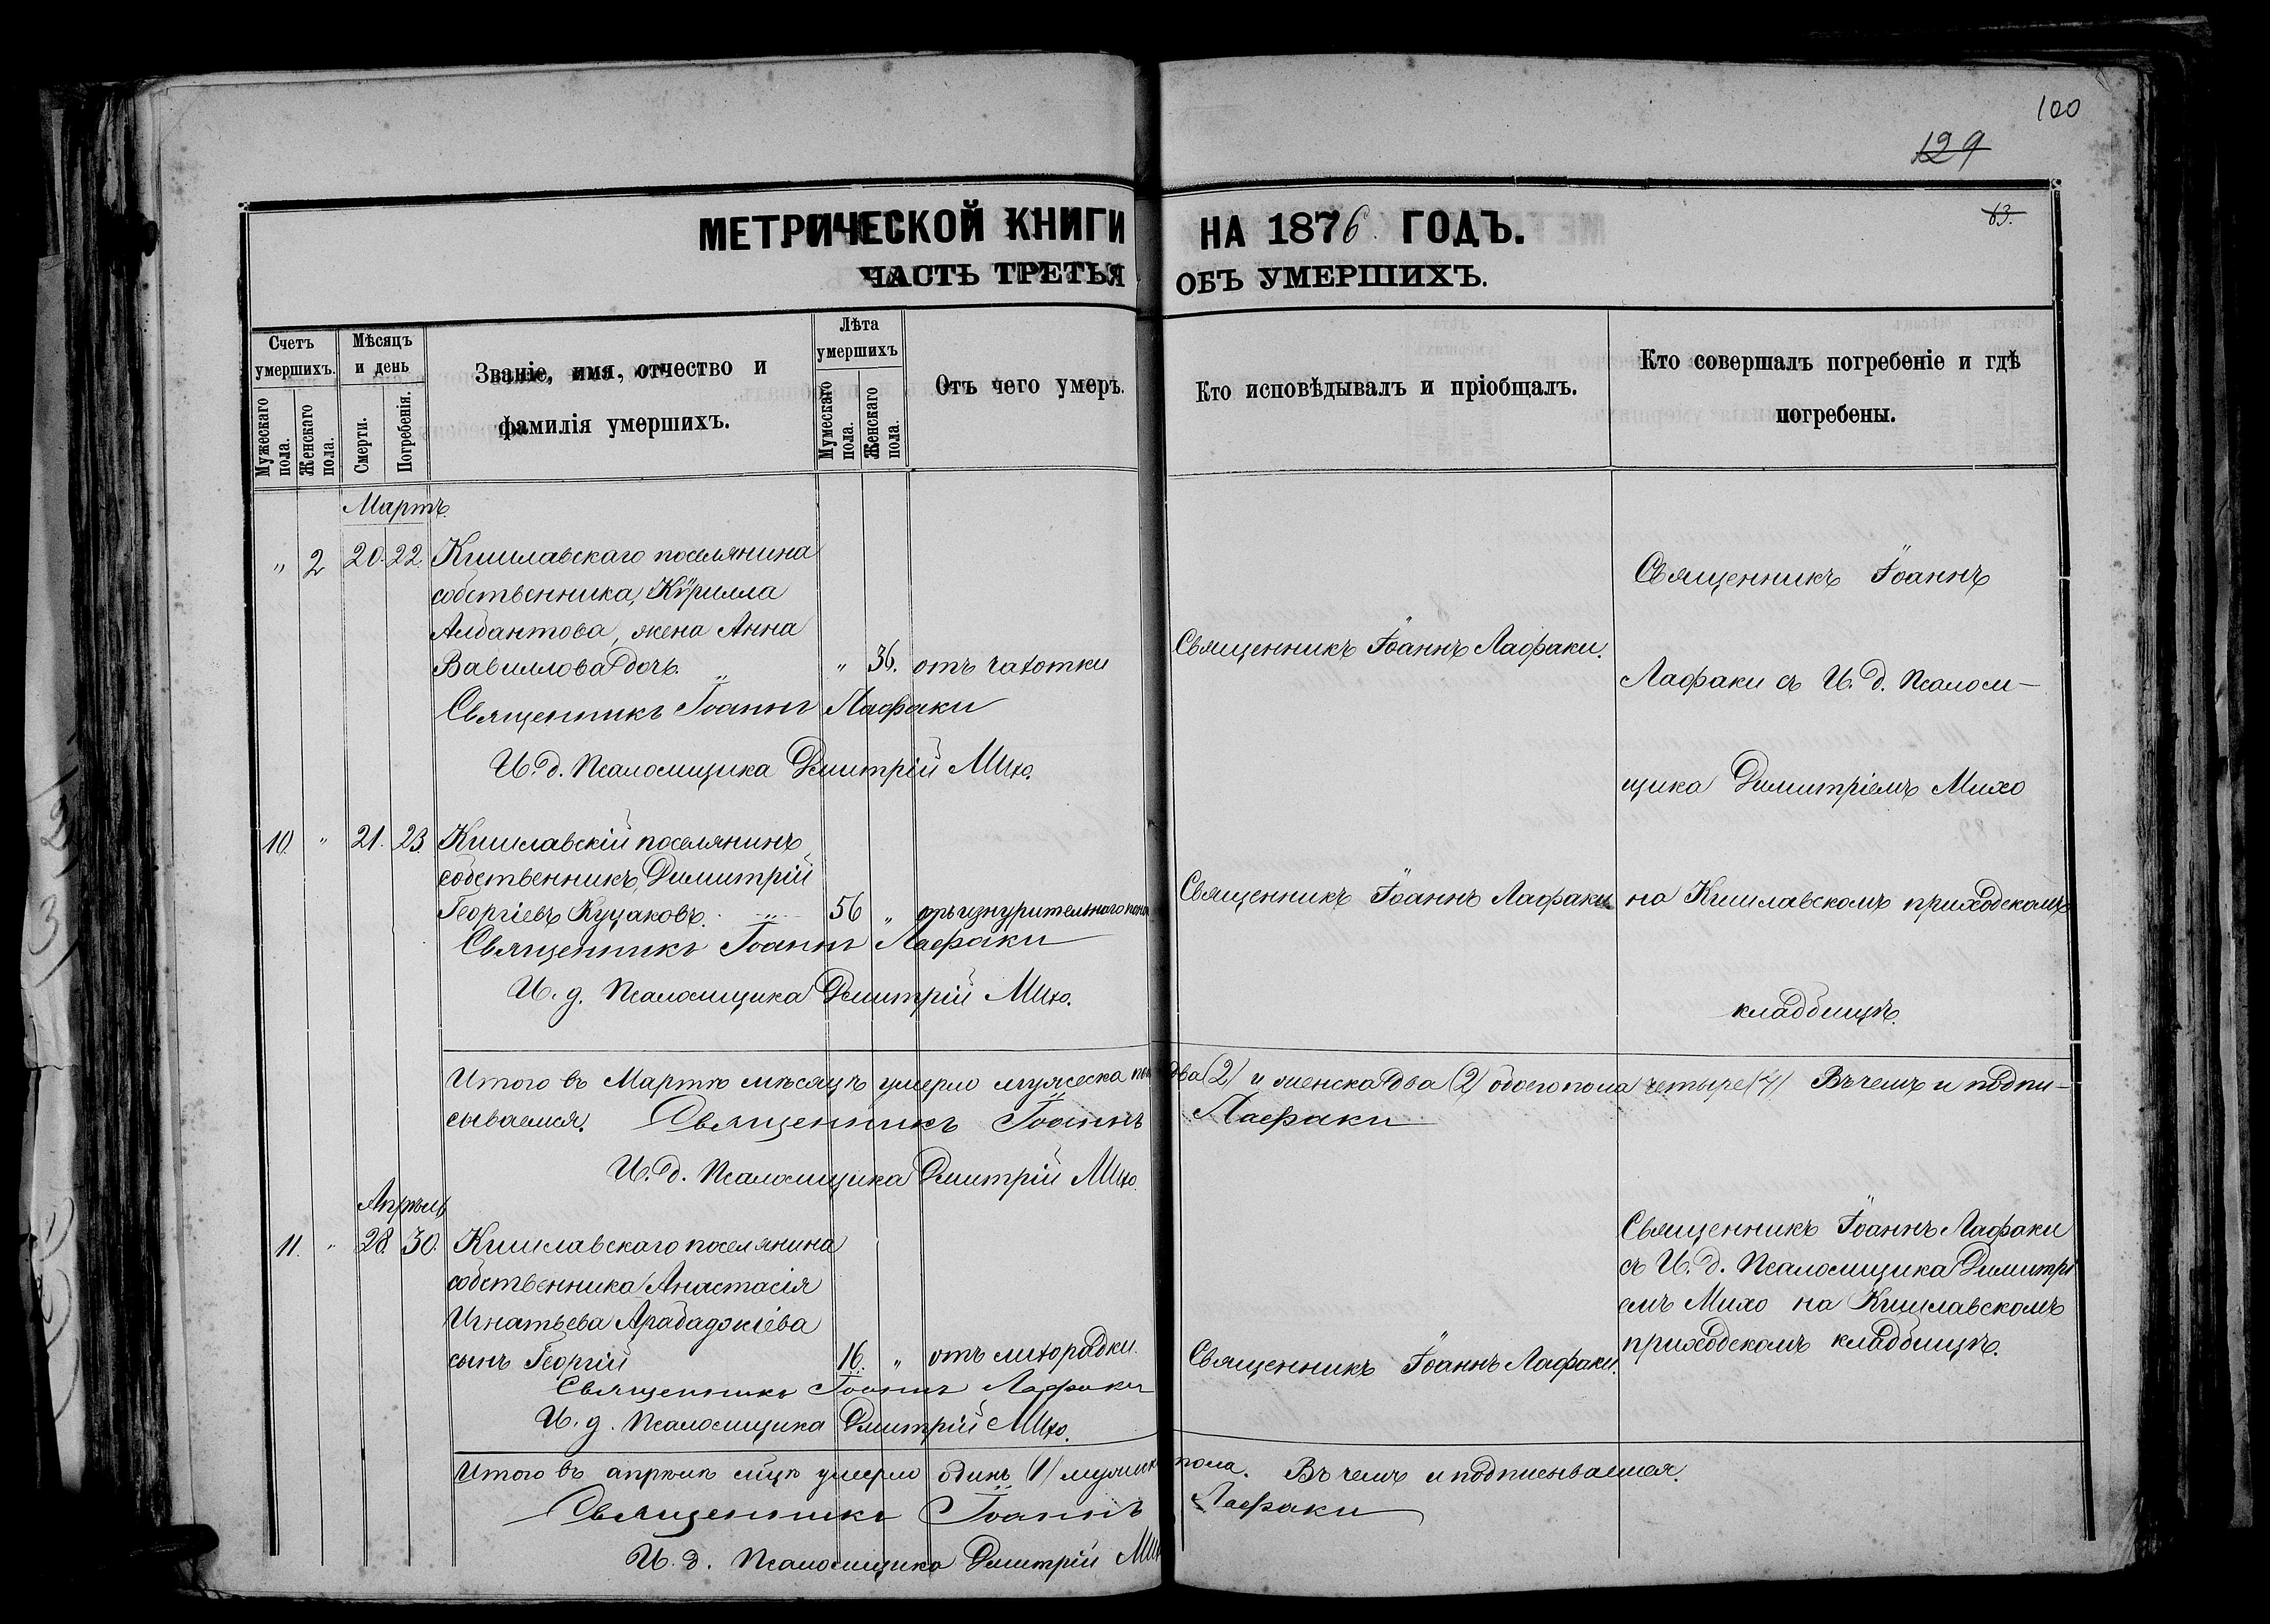 100
129
63.
МЕТРИЧЕСКОЙ КНИГИ НА 1876 ГОДЪ.
ЧАСТЬ ТРЕТЬЯ ОБЪ УМЕРШИХЪ.
Счетъ умершихъ.
Мужескаго пола.
Женскаго пола.
Мѣсяцъ и день
Смерти.
Погребенія.
Званіе, имя, отчество и
фамилія умершихъ.
Лѣта умершихъ
Мужескаго пола.
Женскаго пола.
Отъ чего умеръ.
Кто исповѣдывалъ и пріобщалъ.
Кто совершалъ погребеніе и гдѣ
погребены.
Мартъ
" 2 20. 22. Кишлавскаго поселянина
собственника, Кѵрилла
Албантова, жена Анна
Вавиллова дочь. " 36. отъ чахотки
Священникъ Іоаннъ Лафаки.
Священникъ Іоаннъ
Лафаки съ И. д. Псалом-
щика Димитріемъ Михо
на Кишлавскомъ приходскомъ
кладбищѣ.
Священникъ Іоаннъ Лафаки
И. д. Псаломщика Дмитрій Михо.
10. " 21. 23. Кишлавскій поселянинъ
собственникъ, Димитрій
Георгіевъ Куцаковъ. 56 " отъ изнурительнаго
Священникъ Іоаннъ Лафаки
Священникъ Іоаннъ Лафаки
И. д. Псаломщика Дмитрій Михо.
Итого въ Мартѣ мѣсяцѣ умерло мужеска пола два (2) и женска два (2) обоего пола четыре (4) Въ чемъ и подпи-
сываемся. Священникъ Іоаннъ Лафаки
И. д. Псаломщика Дмитрій Михо
Апрѣль
11. " 28 30. Кишлавскаго поселянина
собственника Анастасія
Игнатьева Арабаджіева
сынъ Георгій 16. " отъ лихорадки.
Священникъ Іоаннъ Лафаки.
Священникъ Іоаннъ Лафаки
съ И. д. Псаломщика Димитрі
емъ Михо на Кишлавскомъ
приходскомъ кладбищѣ.
Священникъ Іоаннъ Лафаки
И. д. Псаломщика Дмитрій Михо.
Итого въ апрѣлѣ мцѣ умерло одинъ (1) мужеска пола. Въ чемъ и подписываемся.
Священникъ Іоаннъ Лафаки
И. д. Псаломщика Дмитрій Михо